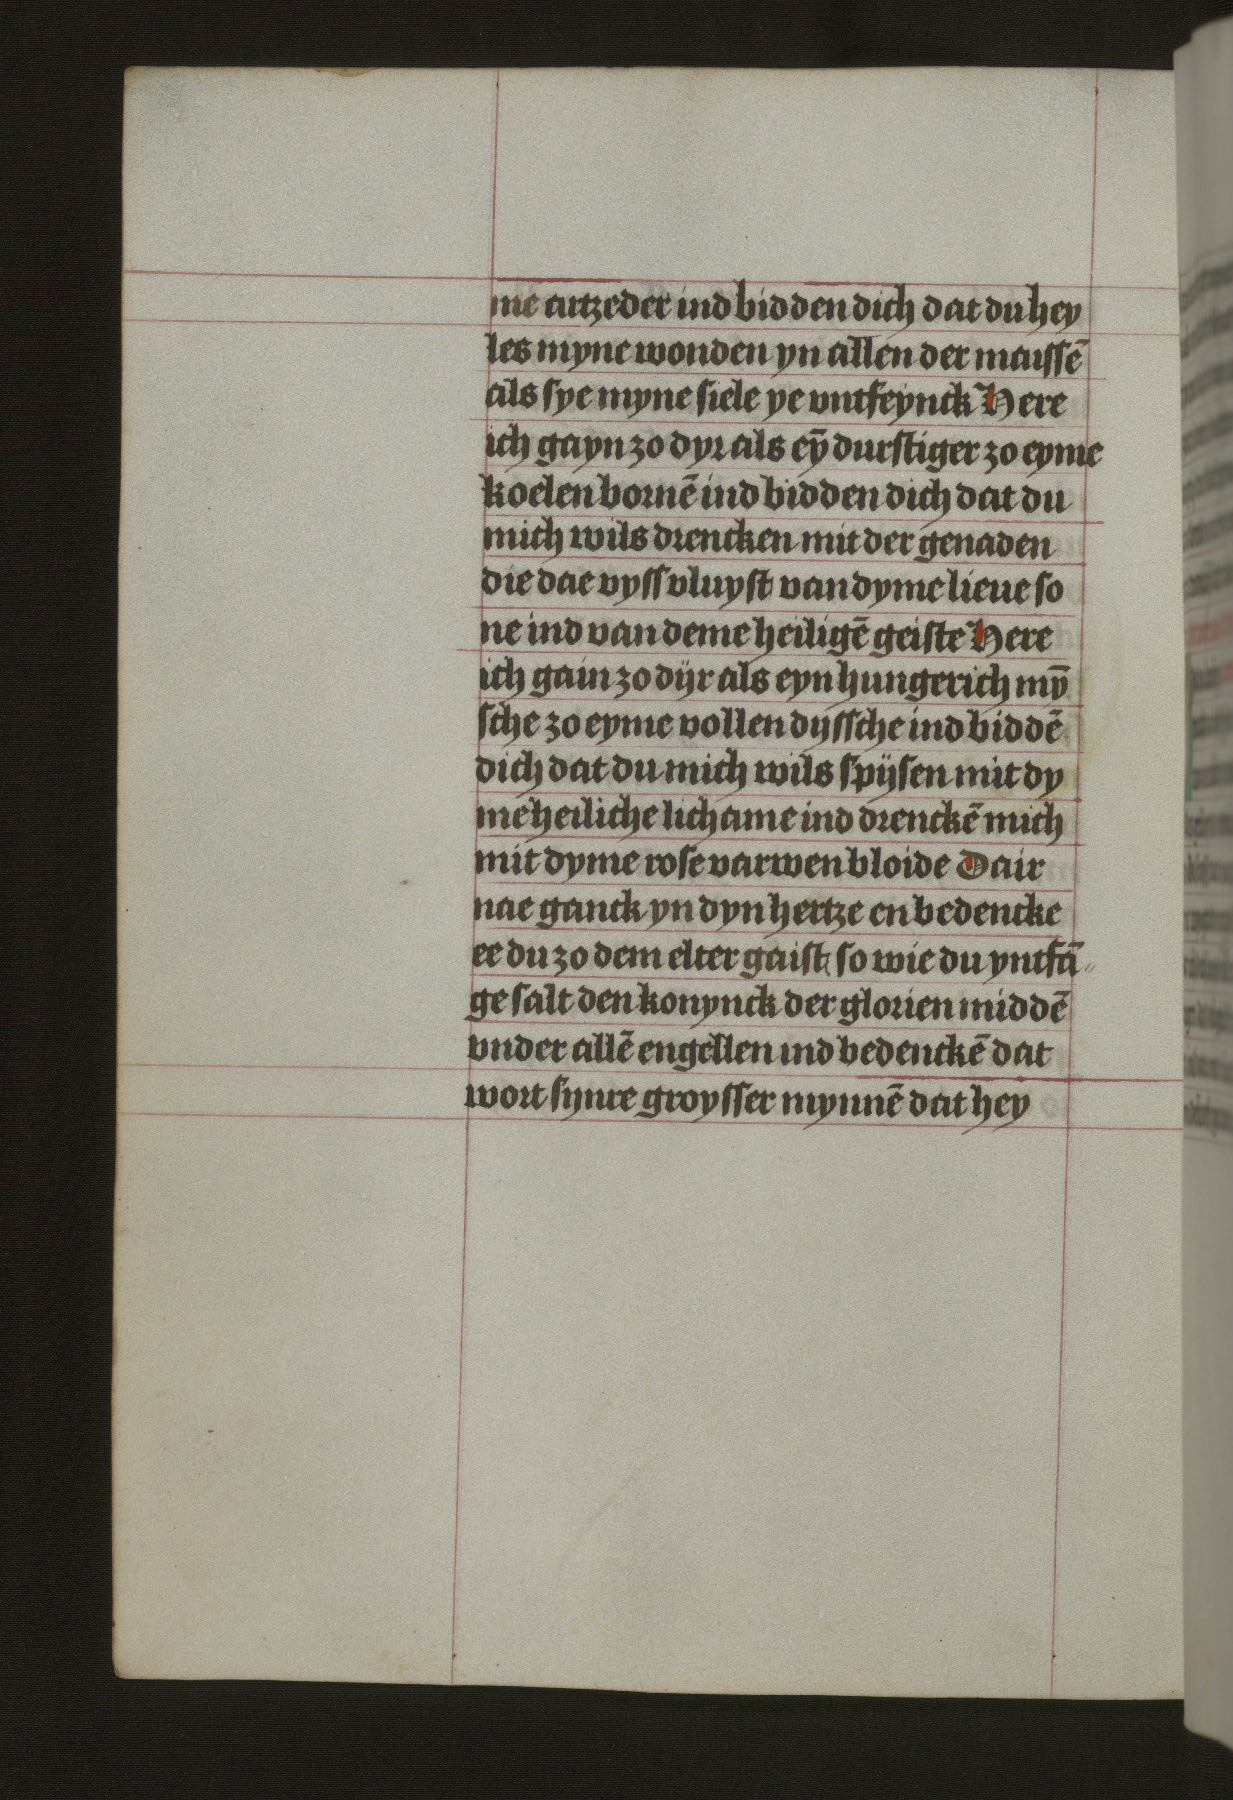 me artzeder ind bidden dich dat du hey
les myne wonden yn allen der maissē
als sye myne siele ye vntfeynck Here
ich gayn zo dyr als eȳ durstiger zo eyme
koelen bornē ind bidden dich dat du
mich wils drencken mit der genaden
die dae vyss vluyst van dyme lieue so
ne ind van deme heiligē geiste Here
ich gain zo dijr als eyn hungerich mȳ
sche zo eyme vollen dyssche ind biddē
dich dat du mich wils spijsen mit dy
me heiliche lichame ind drenckē mich
mit dyme rose varwen bloide Dair
nae ganck yn dyn hertze en bedencke
ee du zo dem elter gaist so wie du yntfā„
ge salt den konynck der glorien middē
vnder allē engellen ind bedenckē dat
wort synre groysser mynnē dat hey